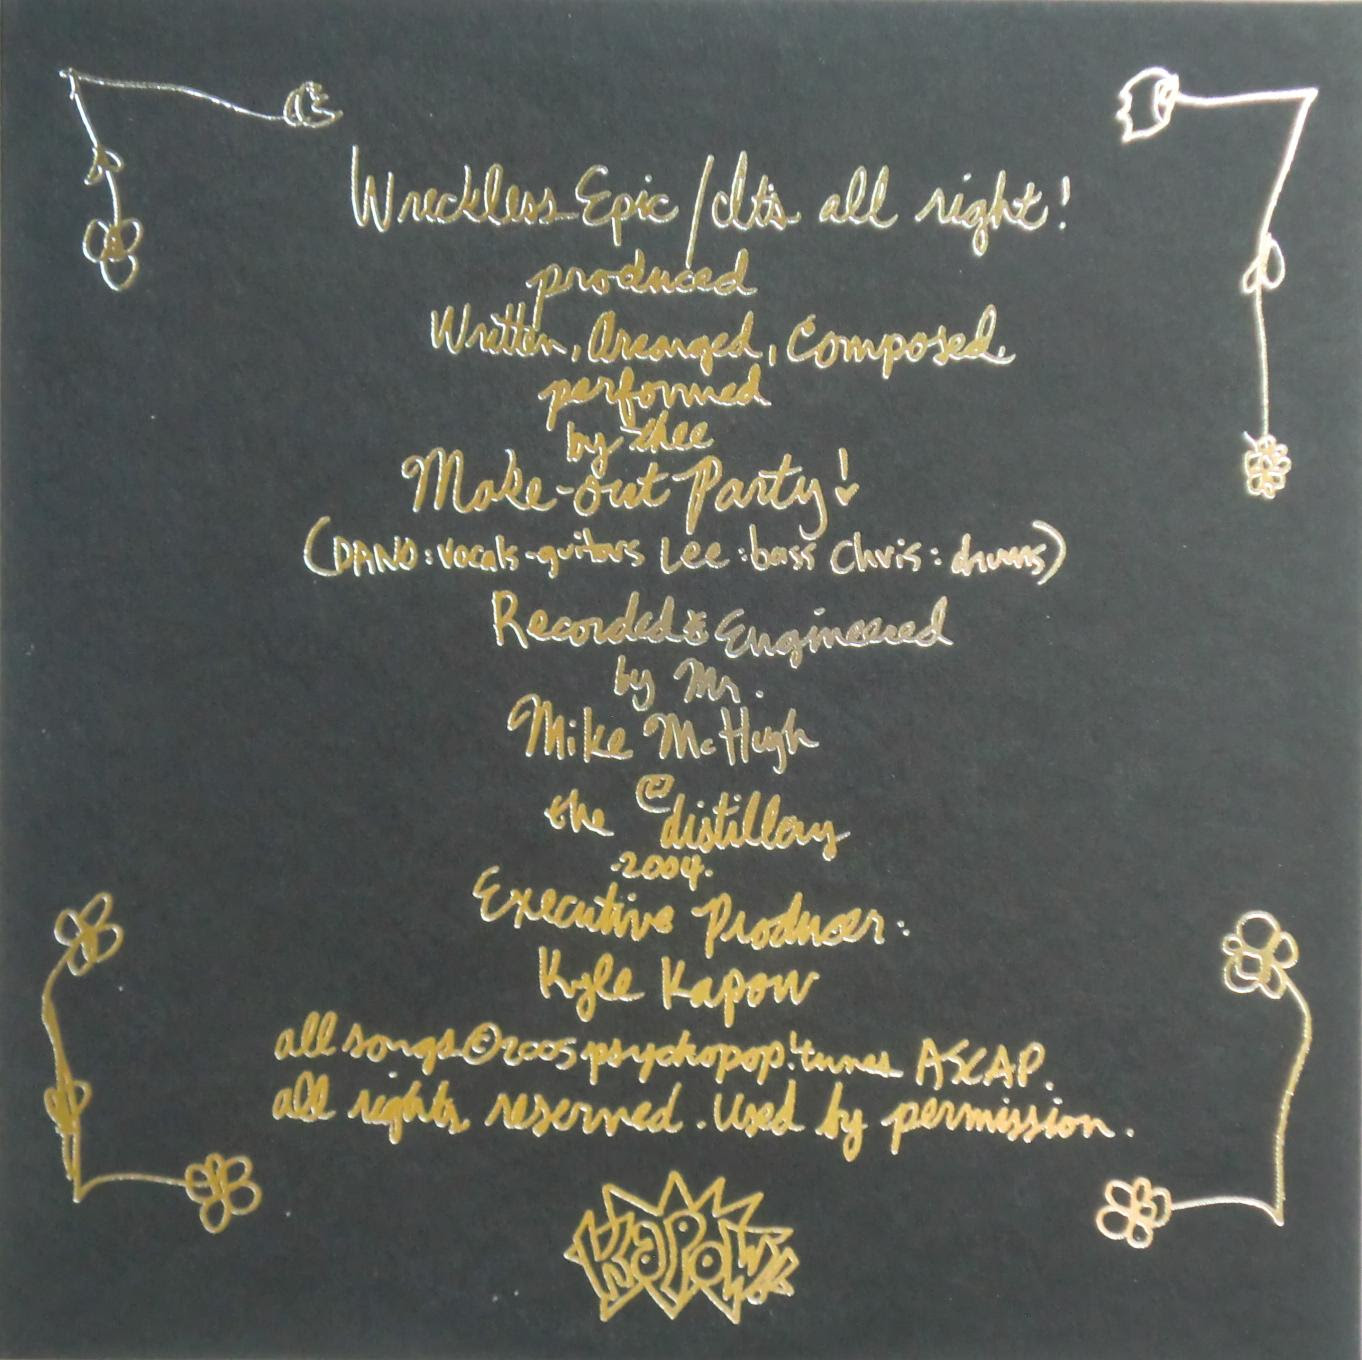 Wreckless Epic / It's all right!
produced
Written, Arranged, Composed,
performed
by thee
Make-out Party!
(DANO: vocals-guitars Lee: bass Chris: drums)
Recorded & Engineered
by Mr.
Mike McHugh
@
the distillery
·2004·
Executive Producer:
Kyle Kapow
all songs © 2005 psychopop! tunes ASCAP.
all rights reserved. Used by permission.
KAPOW